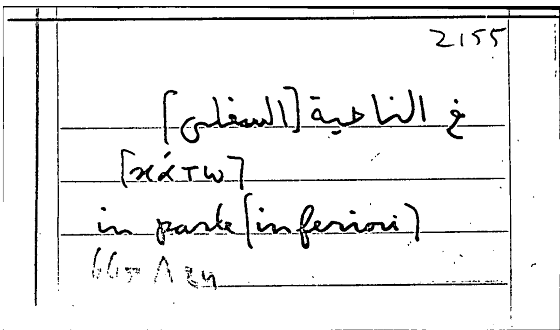 2155
في الناحية [السفلى]
[κάτω]
in parte [inferiori]